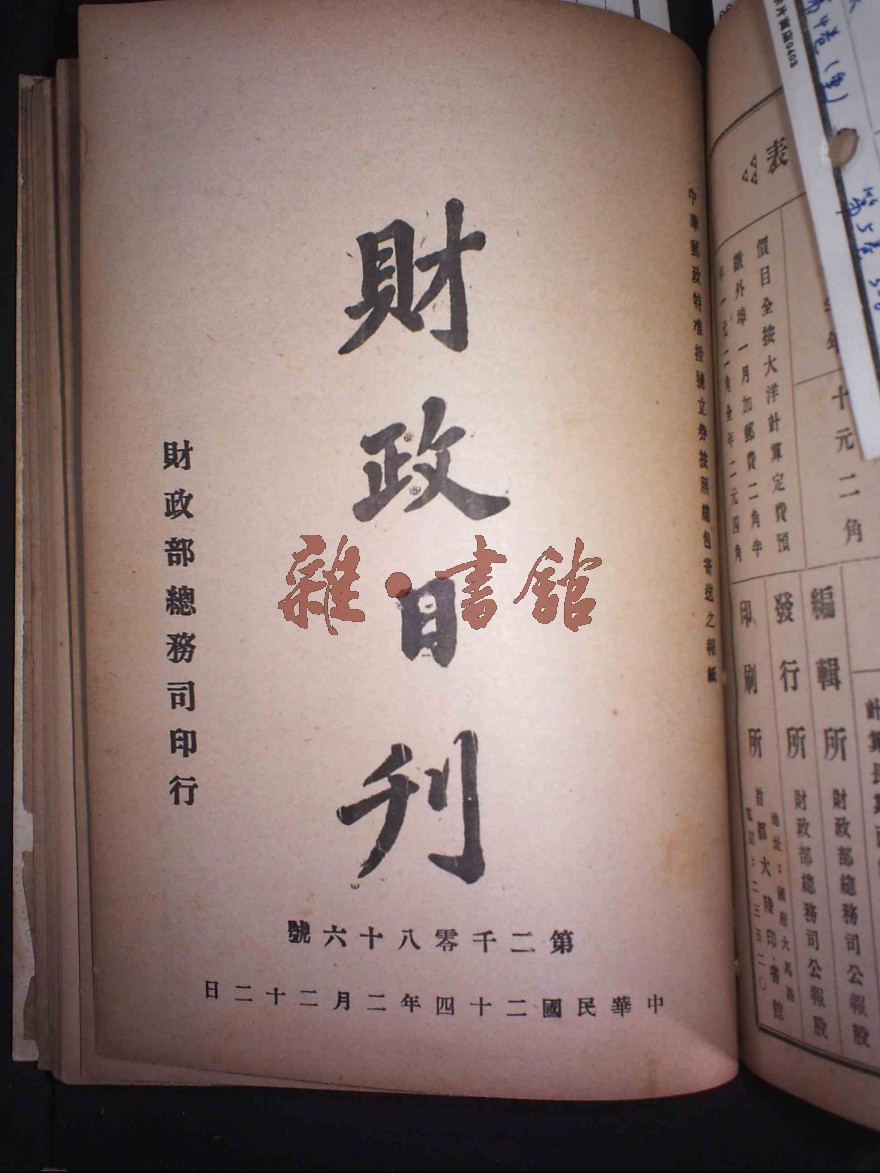 中華郵政特准掛號立券按照總包寄送之報紙
財政日刊
財政部總務司印行
第二千零八十六號
中華民國二十四年二月二十二日
雜·書館
表
十元二角
價目全按大洋計算定費預
繳外埠一月加郵費二角半
年一元二角全年二元四角
編輯所 財政部總務司公報股
發行所 財政部總務司公報股
印刷所 首都大陸印書館
地址：國府大馬路
電話：二三五二〇